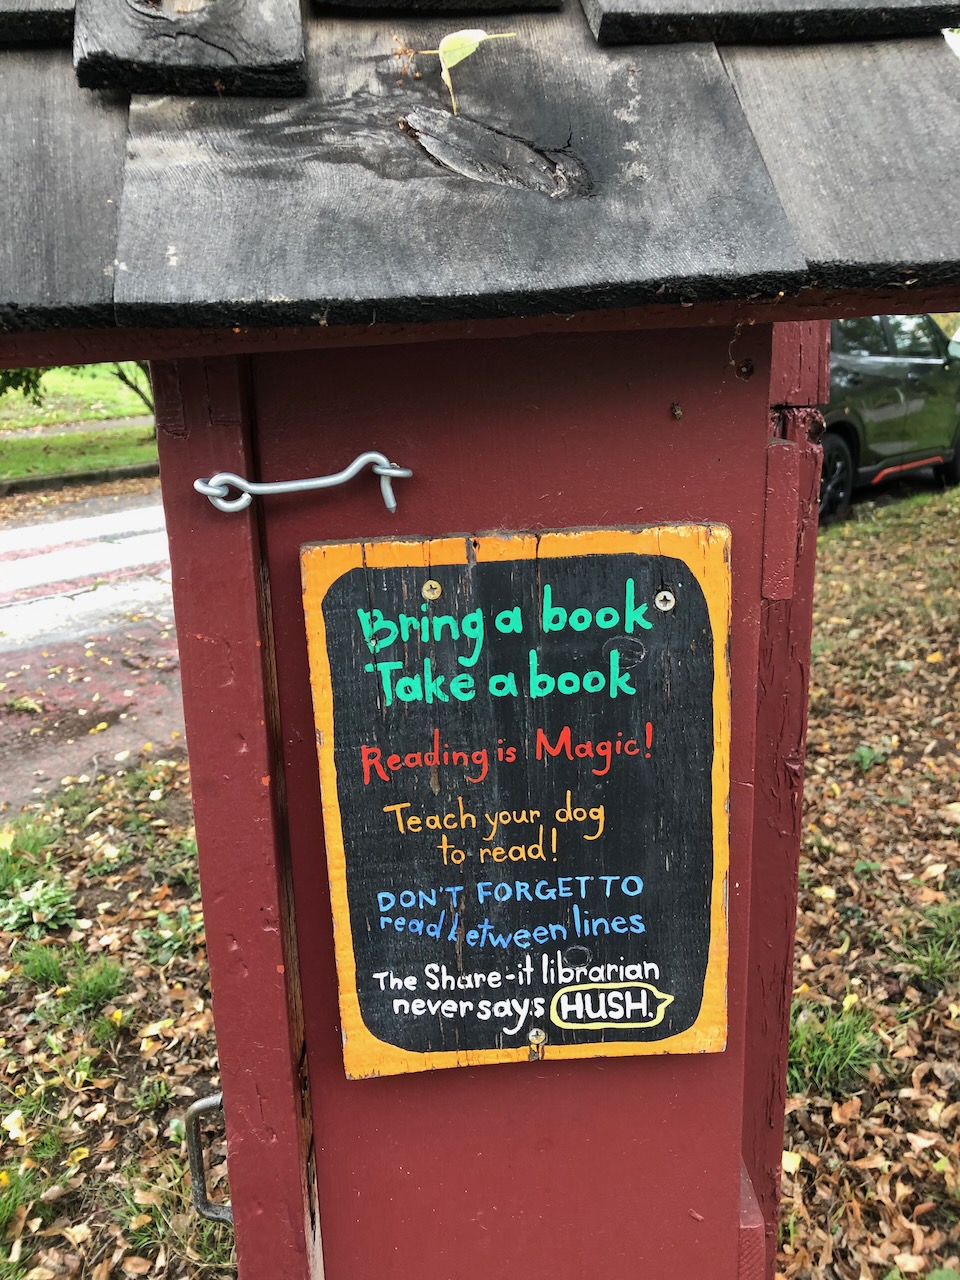 Bring a book
Take a book
Reading is Magic!
Teach your dog
to read!
DON'T FORGET TO
read between lines
The Share-it librarian
never says HUSH.